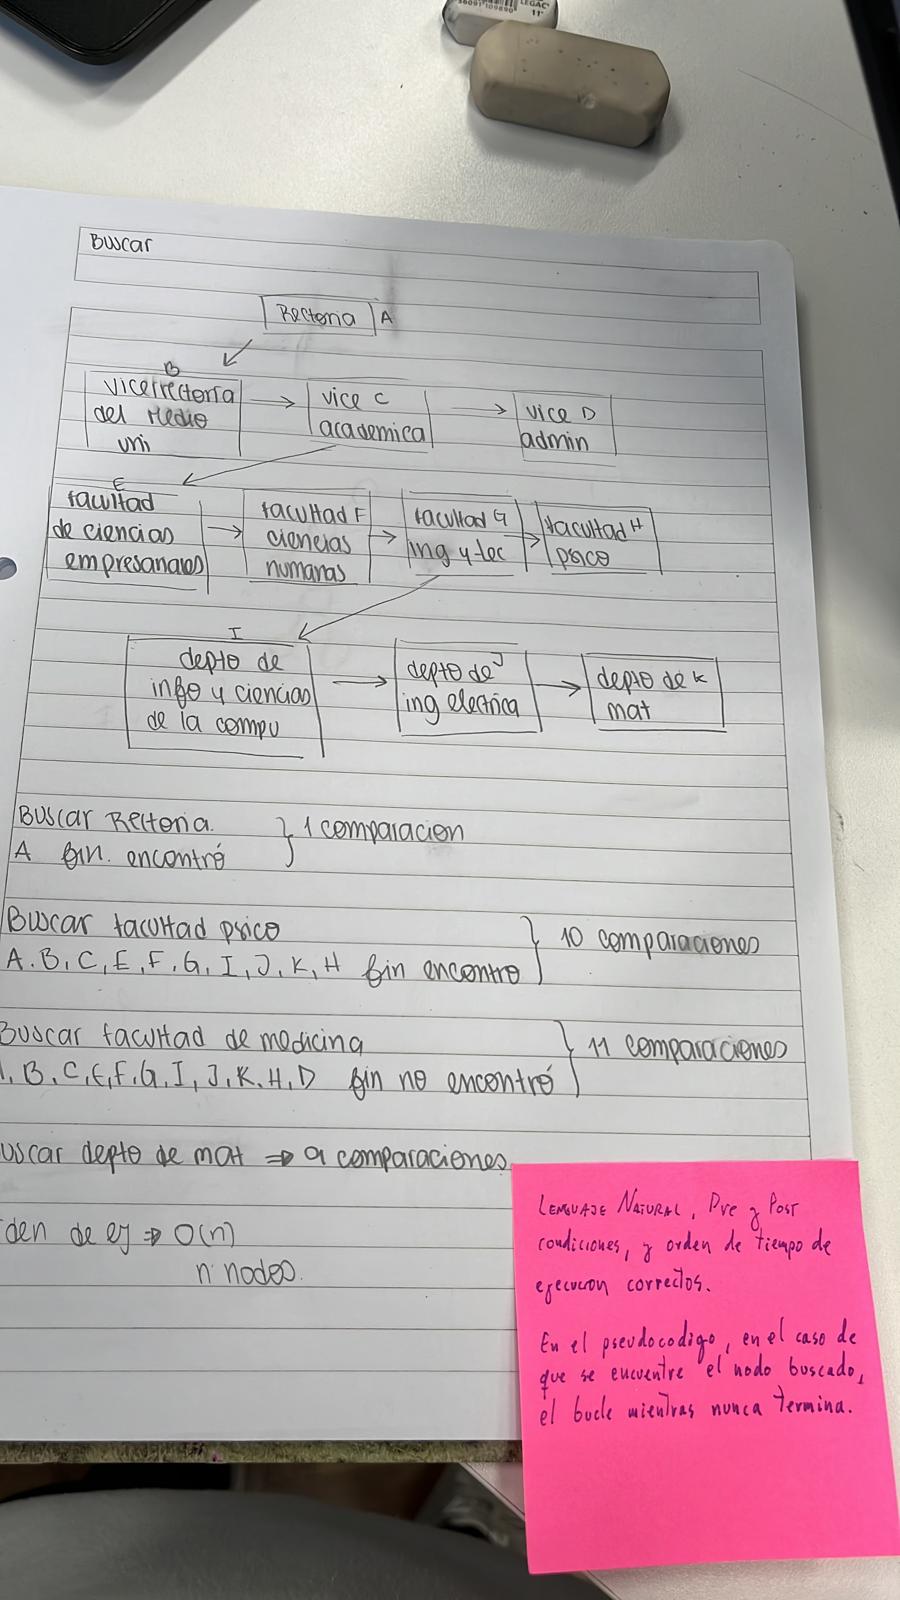 LEGAC
11'
Buscar
Rectoria A
B
vicerrectoria
del Medio
uni
vice C
academica
vice D
admin
E
facultad
de ciencias
empresariales
facultad F
ciencias
humanas
facultad G
ing y tec
facultad H
psico
I
depto de
info y ciencias
de la compu
depto de J
ing electrica
depto de K
mat
Buscar Rectoria.
A fin. encontró
} 1 comparacion
Buscar facultad psico
A. B, C, E, F, G, I, J, K, H fin encontro
} 10 comparaciones
Buscar facultad de medicina
, B, C, E, F, G, I, J, K, H, D fin no encontró
} 11 comparaciones
uscar depto de mat ⇒ 9 comparaciones
den de ej ⇒ O(n)
n: nodos.
Lenguaje Natural, Pre y Post
condiciones, y orden de tiempo de
ejecucion correctos.
En el pseudocodigo, en el caso de
que se encuentre el nodo buscado,
el bucle mientras nunca termina.